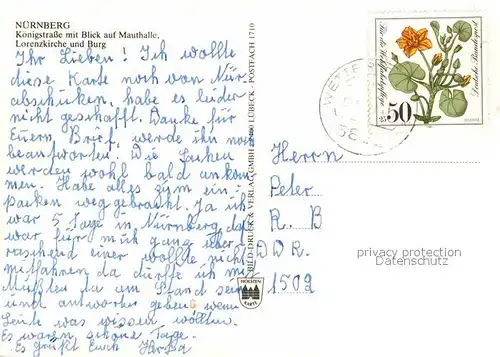 NÜRNBERG
Königstraße mit Blick auf Mauthalle,
Lorenzkirche und Burg
Ihr Lieben! Ich wollte
diese Karte noch von Nür.
abschicken, habe es leider
nicht geschafft. Danke für
Euern Brief, werde ihn noch
beantworten. Die Sachen
werden wohl bald ankom
men. Habe alles zum ein-
packen weg gebracht. Ja ich
war 5 Tage in Nürnberg, das
war für mich ganz über
raschend einer wollte nicht
mitfahren da durfte ich mit
Mußten da am Stand sein
und antworten geben wenn
Leute was wissen wollten.
Es waren schöne Tage.
Es grüßt Euch
BILD-DRUCK & VERLAG GMBH LÜBECK · POSTFACH 1710
HOLSTEN
KARTE
Für die Wohlfahrtspflege
Deutsche Bundespost
50
Herrn
Peter
R. B
DDR.
1502
privacy protection
Datenschutz